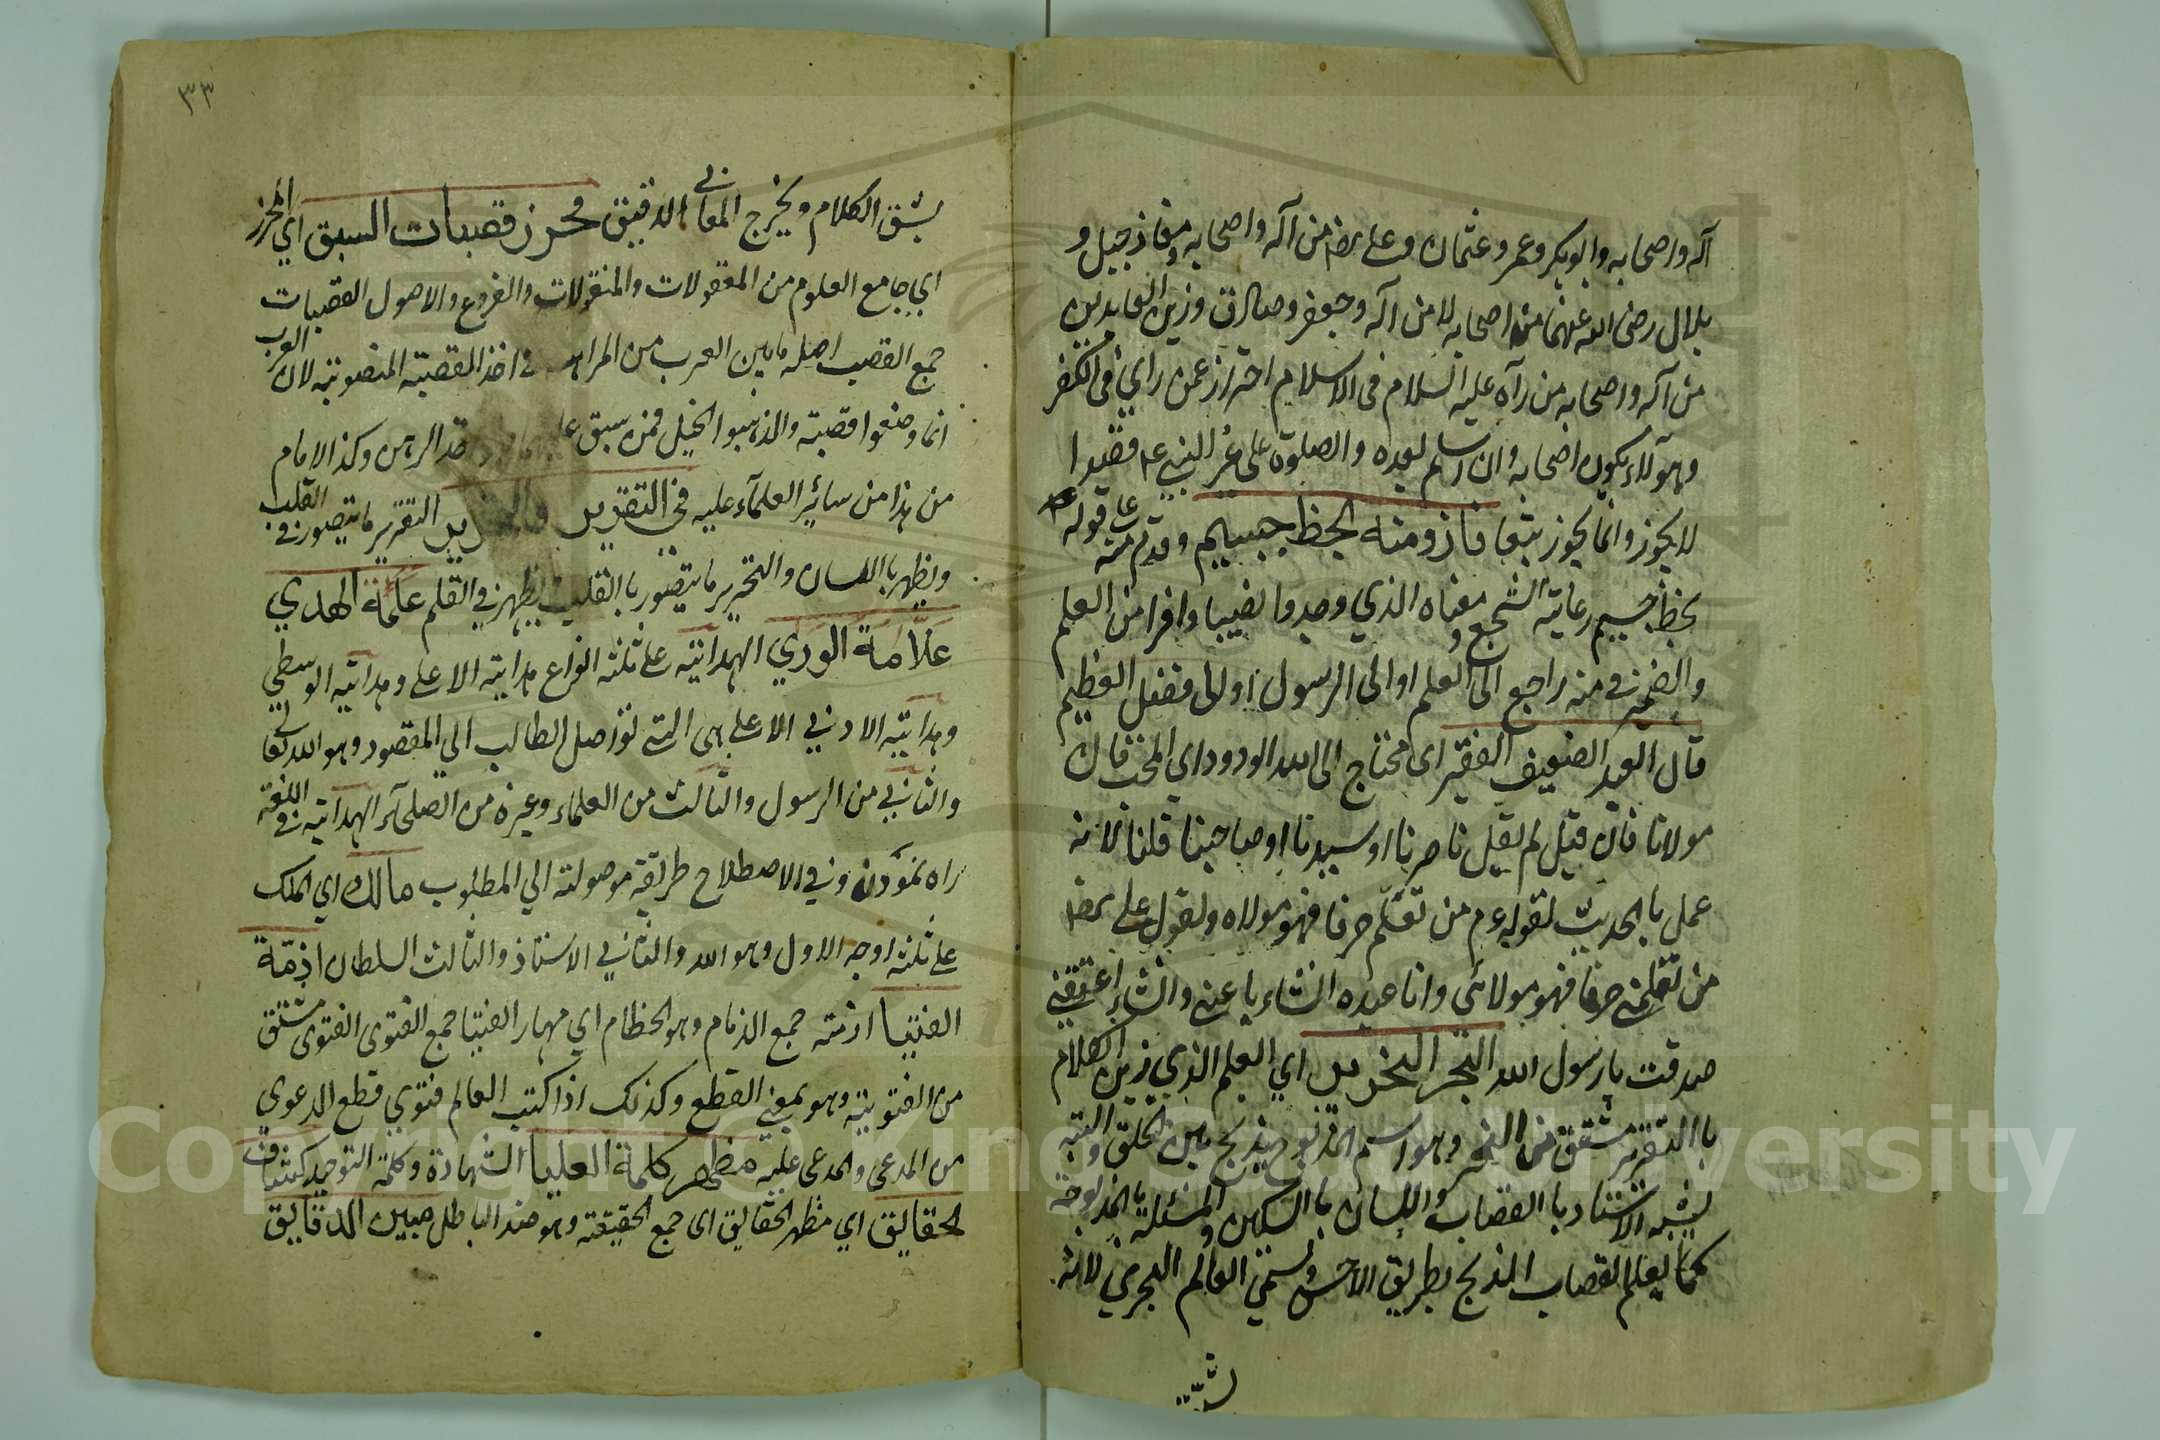 آله واصحابه وابوبكر وعمر وعثمان وعلى رضم من آله واصحابه ومعاذ جبل و
بلال رضى الله عنهما من اصحابه لا من آله وجعفر وصادق وزين العابدين
من آله واصحابه من رآه عليه السلام فى الاسلام احترز عمن راي فى الكفر
وهؤلاء يكون اصحابه وان اسلم بعده والصلوة على غير النبى عم قصدا
لا يجوز وانما يجوز تبعا فازو منه بحظ جسيم وقدم منه على قوله
بحظ جسيم رعاية السجع و معناه الذي وجدوا نصيبا وافرا من العلم
والضمير في منه راجع الى العلم او الى الرسول او الى فضل العظيم
قال العبد الضعيف الفقير اى محتاج الى الله الودود اي المحب قال
مولانا فان قيل لم لم يقل ناصرنا او سيدنا او صاحبنا قلنا لانه
عمل بالحديث لقوله عم من تعلم حرفا فهو مولاه ولقول على رضم
من تعلمني حرفا فهو مولائى وانا عبده انشاء باعنى وانشاء اعتقني
صدقت يا رسول الله النحر النحرير اي العلم الذي زين الكلام
باالتقرير مشتق من النحر وهو اسم المذبوح يذبح بين الحلق واللبه
يشبه الاستاد با القصاب واللسان باالسكين والمسئلة بالمذبوحة
كما يعلم القصاب الذبح بطريق الاحسن ويسمى العالم النحري لانه
يشق
٣٣
يشق الكلام ويخرج المعانى الدقيق محرز قصبات السبق اي المحرز
اي جامع العلوم من المعقولات والمنقولات والفروع والاصول القصبات
جمع القصب اصله ما بين العرب من المراد في اخذ القصبة المنصوبة لان العرب
انما وضعوا قصبة والذهبوا الخيل فمن سبق اخذ الرهن وكذا الامام
من هذا من سائر العلمآء عليه في التقرير والتحرير التقرير ما يتصور في القلب
ويظهر باالسان والتحرير ما يتصور بالقلب يظهر في القلم علمة الهدي
علامة الوري الهداية على ثلثة انواع هداية الاعلى وهداية الوسطي
وهداية الادني الاعلى هى التى توصل الطالب الي المقصود وهو الله تعالى
والثاني من الرسول والثالث من العلماء وغيره من الصلحآء الهداية في اللغة
راه نمودن وفي الاصطلاح طريقة موصولة الي المطلوب مالك اي الملك
على ثلثه اوجه الاول وهو الله والثاني الاستاذ والثالث السلطان ازمة
الفتيا ازمته جمع الذمام وهو الخظام اي مهار الفتيا جمع الفتوى الفتوى مشتق
من الفتوية وهو بمعنى القطع وكذلك اذا كتب العالم فتوي قطع الدعوي
من المدعى والمدعى عليه مظهر كلمة العليا الشهادة وكلمة التوحيد كشاف
الحقايق اي مظهر الحقايق اى جمع الحقيقة وهو ضد الباطل مبين الدقايق
Copyright © King Saud University